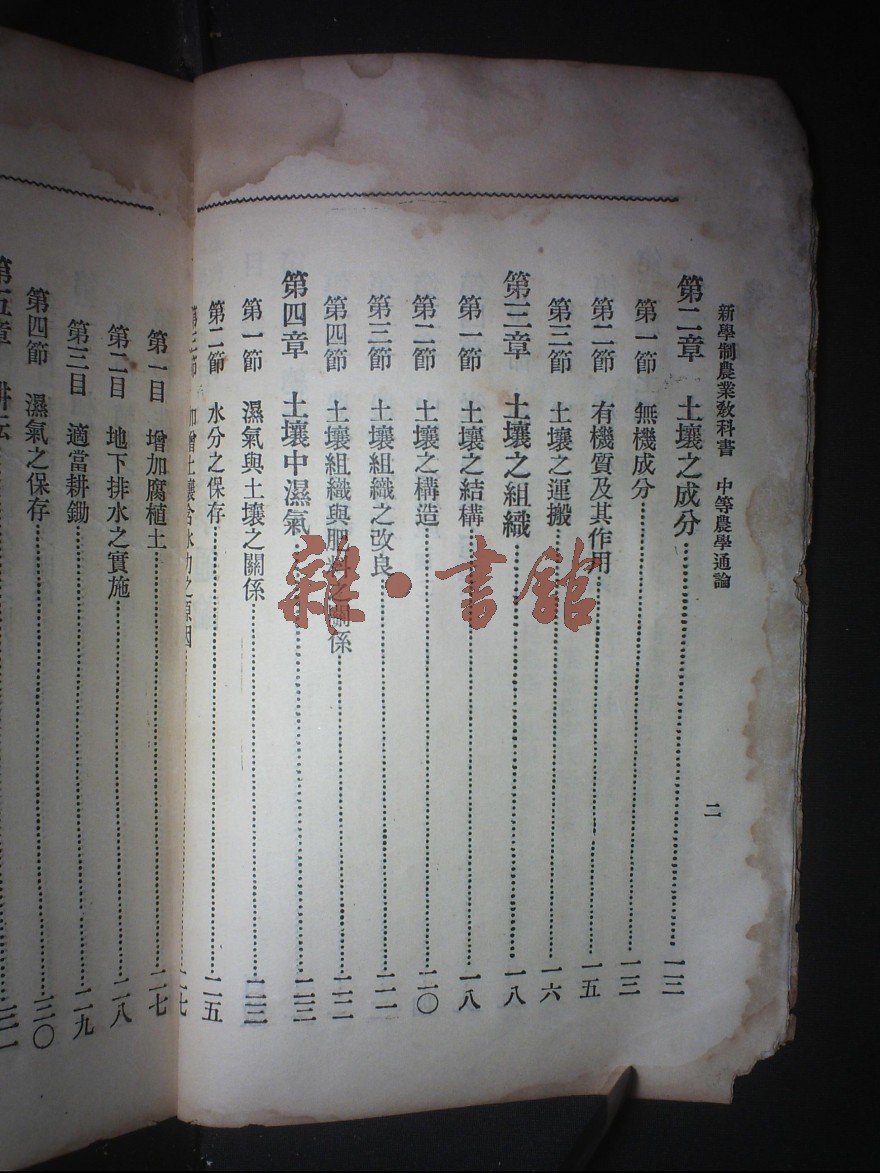 新學制農業教科書 中等農學通論
二
第二章 土壤之成分……一三
第一節 無機成分……一三
第二節 有機質及其作用……一五
第三節 土壤之運搬……一六
第三章 土壤之組織……一八
第一節 土壤之結構……一八
第二節 土壤之構造……二〇
第三節 土壤組織之改良……二一
第四節 土壤組織與肥料之關係……二二
第四章 土壤中濕氣……二三
第一節 濕氣與土壤之關係……二三
第二節 水分之保存……二五
第三節 加增土壤含水力之原因……二七
第一目 增加腐植土……二七
第二目 地下排水之實施……二八
第三目 適當耕鋤……二九
第四節 濕氣之保存……三〇
第五章 耕耘
雜·書館